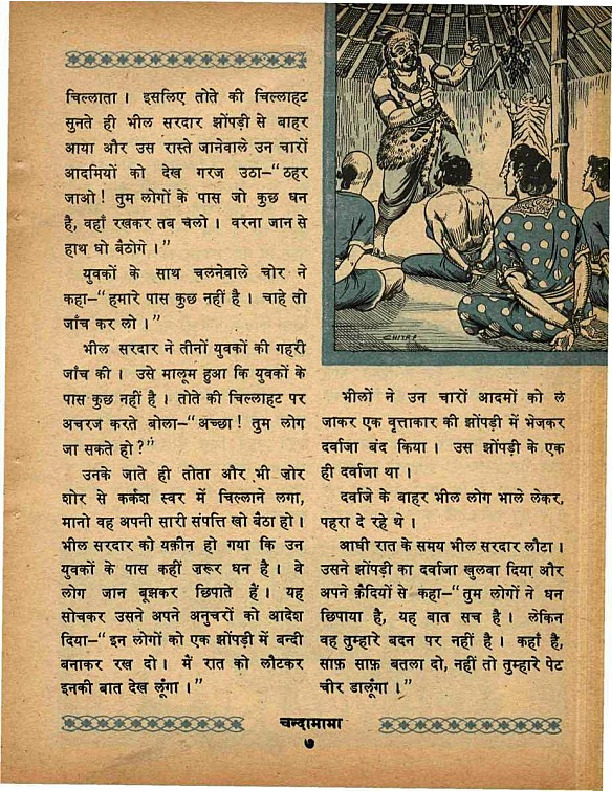 चिल्लाता । इसलिए तोते की चिल्लाहट
सुनते ही भील सरदार झोंपड़ी से बाहर
आया और उस रास्ते जानेवाले उन चारों
आदमियों को देख गरज उठा-“ठहर
जाओ ! तुम लोगों के पास जो कुछ धन
है, वहाँ रखकर तब चलो । वरना जान से
हाथ धो बैठोगे ।”
युवकों के साथ चलनेवाले चोर ने
कहा-“हमारे पास कुछ नहीं है । चाहे तो
जाँच कर लो ।”
भील सरदार ने तीनों युवकों की गहरी
जाँच की । उसे मालूम हुआ कि युवकों के
पास कुछ नहीं है । तोते की चिल्लाहट पर
अचरज करते बोला-“अच्छा ! तुम लोग
जा सकते हो ?”
उनके जाते ही तोता और भी ज़ोर
शोर से कर्कश स्वर में चिल्लाने लगा,
मानो वह अपनी सारी संपत्ति खो बैठा हो ।
भील सरदार को यक़ीन हो गया कि उन
युवकों के पास कहीं ज़रूर धन है । वे
लोग जान बूझकर छिपाते हैं । यह
सोचकर उसने अपने अनुचरों को आदेश
दिया-“इन लोगों को एक झोंपड़ी में बन्दी
बनाकर रख दो । में रात को लौटकर
इनकी बात देख लूँगा ।”
CHITRA
भीलों ने उन चारों आदमों को ले
जाकर एक वृत्ताकार की झोंपड़ी में भेजकर
दर्वाजा बंद किया । उस झोंपड़ी के एक
ही दर्वाजा था ।
दर्वाजे के बाहर भील लोग भाले लेकर,
पहरा दे रहे थे ।
आधी रात के समय भील सरदार लौटा ।
उसने झोंपड़ी का दर्वाजा खुलवा दिया और
अपने क़ैदियों से कहा-“तुम लोगों ने धन
छिपाया है, यह बात सच है । लेकिन
वह तुम्हारे बदन पर नहीं है । कहाँ है,
साफ़ साफ़ बतला दो, नहीं तो तुम्हारे पेट
चीर डालूंगा ।”
चन्दामामा
७